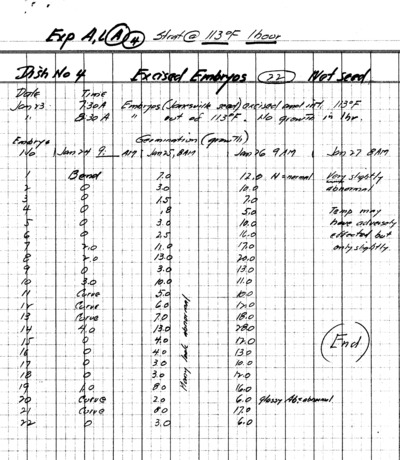 Exp A, b (A) 4 Start @ 113°F 1 hour
Dish No 4 Excised Embryos (22) Not seed
Date Time
Jan 23 7:30A Embryos (Clarksville seed) excised and int. 113°F
" 8:30A " out of 113°F. No growth in 1 hr.
Embryo Germination (growth)
No Jan 24 9 AM Jan 25, 8AM Jan 26 9 AM Jan 27 8AM
1 Bend 7.0 12.0 N = normal Very slightly
2 0 3.0 10.0 abnormal
3 0 1.5 7.0
4 0 .8 5.0 Temp may
5 0 3.0 10.0 have adversely
6 0 2.5 effected but
7 2.0 11.0 17.0 only slightly.
8 2.0 13.0 20.0
9 0 3.0 13.0
10 3.0 10.0 11.0
11 Curve 5.0 10.0
12 Curve 6.0 12.0
13 Curve 7.0 18.0
14 4.0 13.0 28.0
15 0 4.0 12.0 (End)
16 0 4.0 13.0
17 0 3.0 10.0
18 0 3.0 12.0
19 1.0 8.0 16.0
20 Curve 2.0 6.0 Glassy Ab = abnormal
21 Curve 8.0 17.0
22 0 3.0 6.0
Many look abnormal